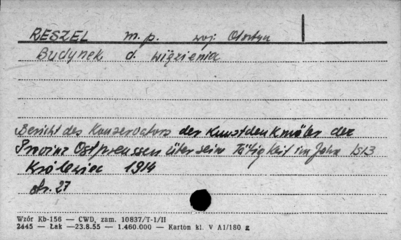 RESZEL m.p. woj. Olsztyn
Budynek d. więzienia
Bericht des Konservators der Kunstdenkmäler der
Provinz Ostpreussen über seine Tätigkeit im Jahre 1913
Królewiec 1914
str. 27
Wzór Kb-156 — CWD, zam. 10837/T-1/II
2645 — Łak —23.8.55 — 1.460.000 — Karton kl. V A1/180 g